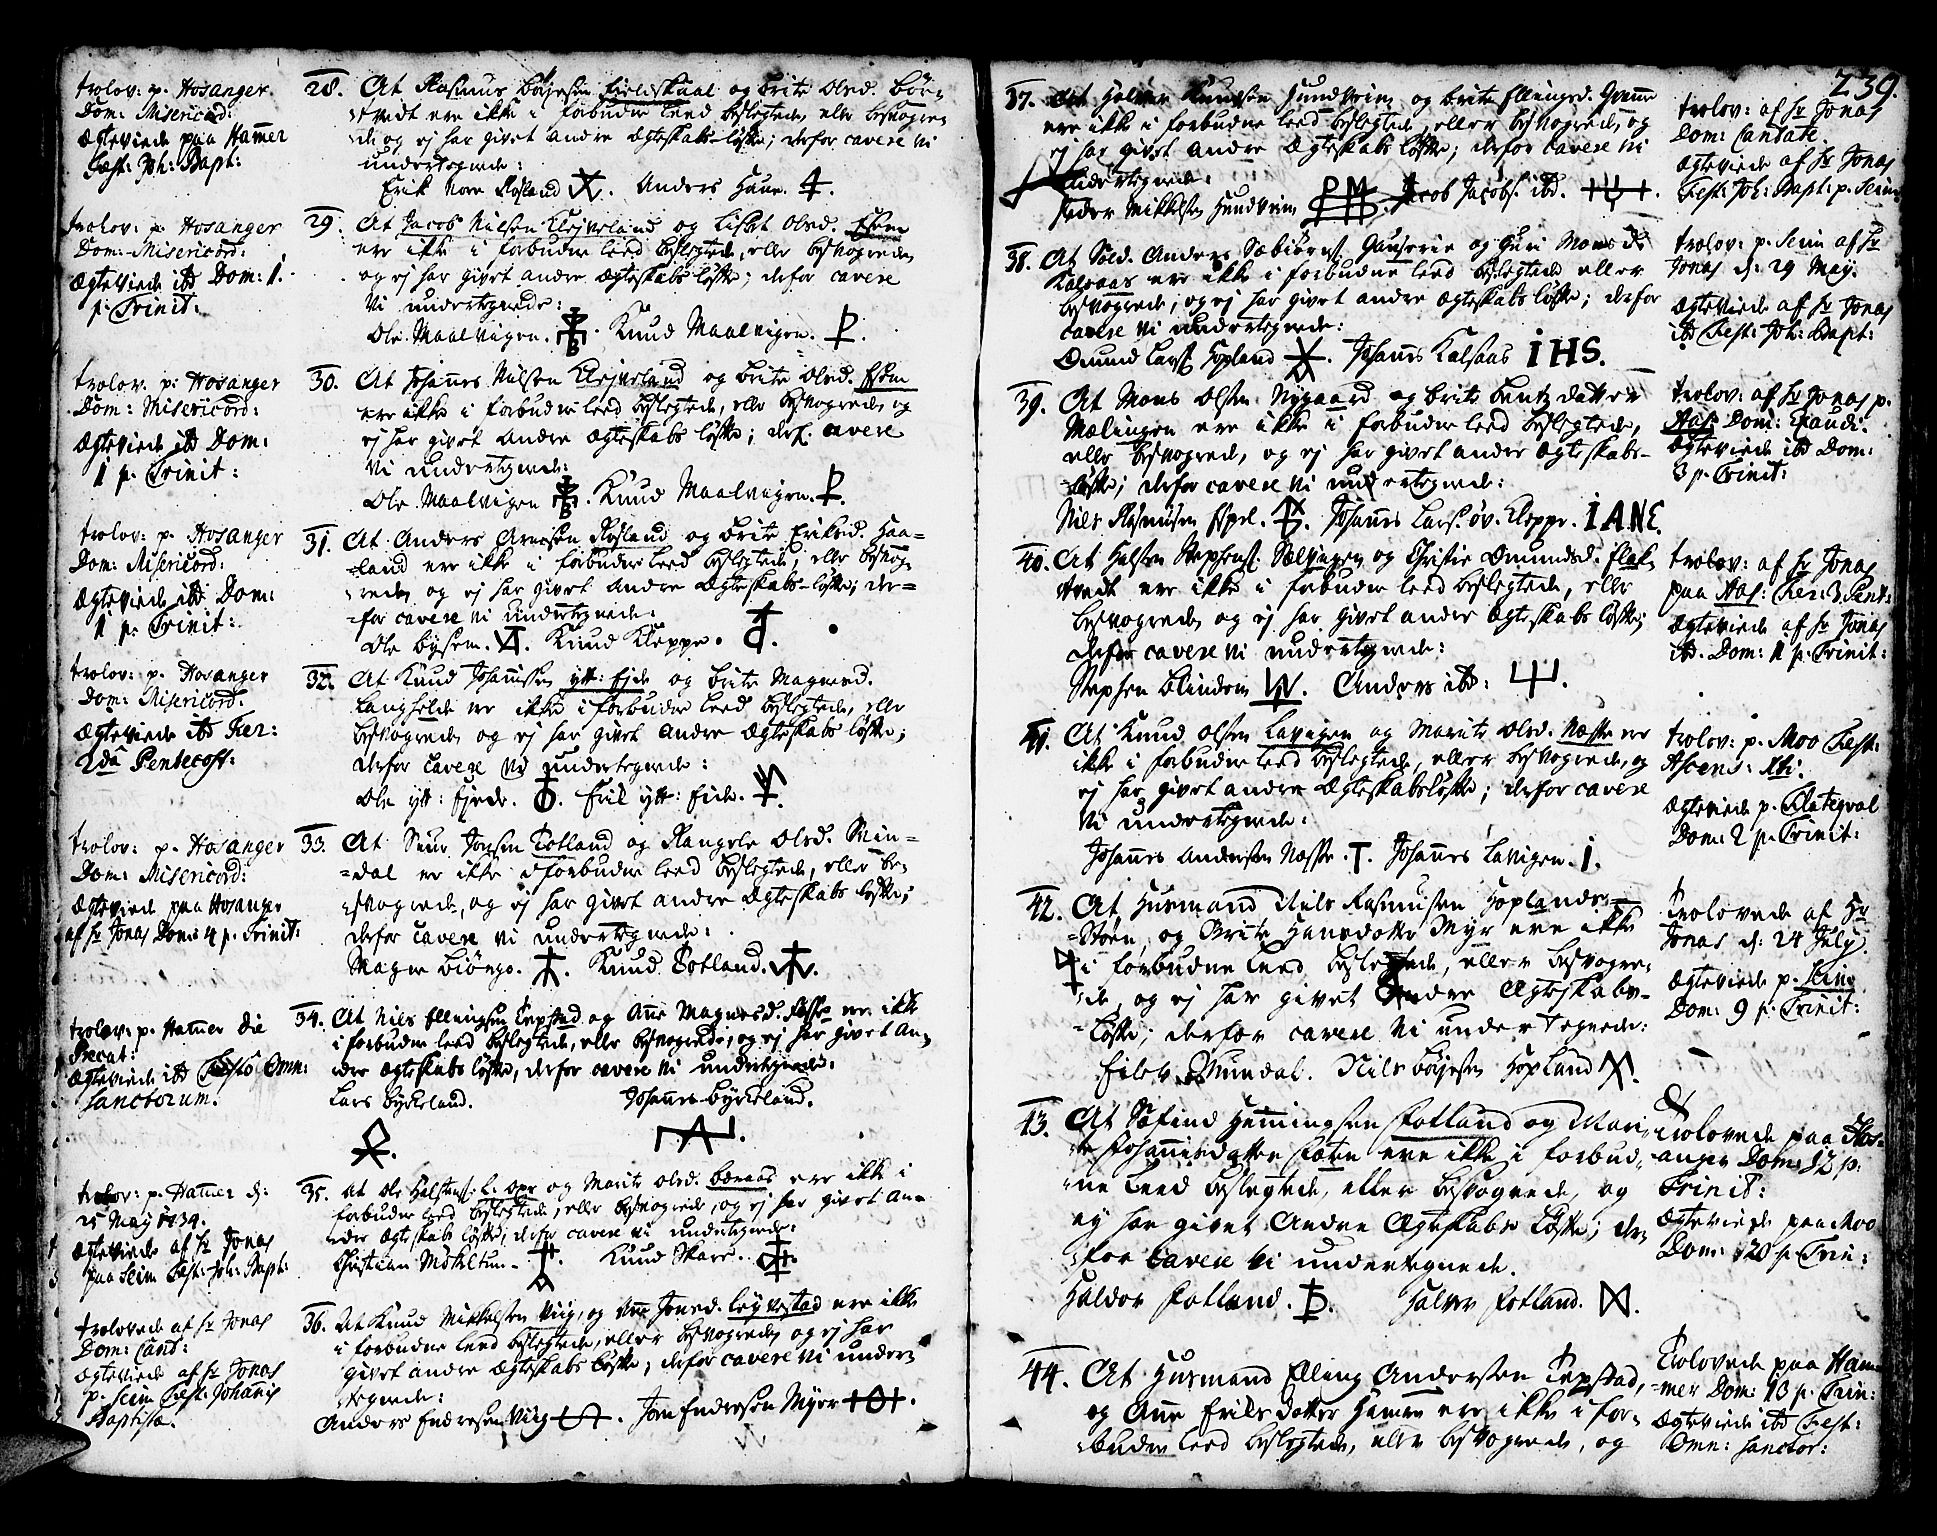 trolov: p. Hosanger
Dom: Misericord:
Ægteviede paa Hamer
Fæst: Joh: Bapt:
28. At Rasmus Børjesen Fieldskaal og Brite Olsd. Bør=
=tvedt ere ikke i forbudne Leed beslegtede, eller besvogre=
=de og ej har givet andre Ægteskabs-Løfte; derfor cavere vi
undertegnede:
Erik Røsland. Anders Haue.
trolov: p. Hosanger
Dom: Misericord:
Ægteviede ibd Dom: 1.
p. Trinit:
29. At Jacob Nilsen Klejveland og Lisbet Olsd.
ere ikke i forbudne Leed beslegtede, eller besvogrede,
og ej har givet andre Ægteskabs Løfte; derfor cavere
vi undertegnede:
Ole Maalvigen. Knud Maalvigen.
trolov: p: Hosanger
Dom: Misericord:
Ægteviede ibd Dom:
1 p. Trinit:
30. At Johannes Nilsen Klejveland og Brite Olsd.
ere ikke i forbudne Leed beslegtede, eller besvogrede, og
ej har givet andre Ægteskabs Løfte; derf: cavere
vi undertegnede:
Ole Maalvigen. Knud Maalvigen.
trolov: p. Hosanger
Dom: Misericord:
Ægteviede ibd Dom:
1 p. Trinit:
31. At Anders Arnesen Røsland og Brite Eriksd. Haa=
=land ere ikke i forbudne Leed beslegtede, eller besvog=
=rede, og ej har givet andre Ægteskabs-Løfte; der=
=for cavere vi undertegnede:
Ole Bysem. Knud Kleppe.
trolov: p. Hosanger
Dom: Misericord:
Ægteviede ibd Fer:
2da Pentecost:
32. At Knud Johannessen ytt: Ejde og Brite Magnesd.
Langhelde ere ikke i forbudne Leed beslegtede, eller
besvogrede og ej har givet andre Ægteskabs Løfte;
derfor cavere vi undertegnede:
Ole ytt: Ejede. Eril ytt: Eide.
trolov: p. Hosanger
Dom: Misericord:
Ægteviede paa Hosanger
af Hr Jonas Dom: 4 p. Trinit:
33. At Siur Jonsen Totland og Rangele Olsd. Svin=
=dal ere ikke i forbudne Leed beslegtede, eller be=
=svogrede, og ej har givet andre Ægteskabs Løfte;
derfor cavere vi undertegnede:
Magne Biønge. Knud Totland.
trolov: p. Hamer Die
Precat:
Ægteviede ibd Festo Omn:
Sanctorum.
34. At Nils Ellingsen Tepstad og Ane Magnesd. Fosse ere ikke
i forbudne Leed beslegtede, eller besvogrede, og ej har givet an=
=dre Ægteskabs Løfte, derfor cavere vi undertegnede:
Lars Byrkeland. Johannes Byrkeland.
trolov: p. Hamer d:
25 May 1734.
Ægteviede af Hr Jonas
paa Seim Fest: Joh: Bapt:
35. At Ole Halstens: og Marite Olsd. ere ikke i
forbudne Leed beslegtede, eller besvogrede, og ej har givet an=
=dre Ægteskabs Løfte, derfor cavere vi undertegnede:
Christian Mikeltun. Knud Skare.
trolovede af Hr Jonas
Dom: Cand:
Ægteviede af Hr Jonas
p. Seim Fest: Johanis
Baptistæ.
36. At Knud Mikkelsen Viig, og Ane Jonsd. Leqvestad ere ikke
i forbudne Leed beslegtede, eller besvogrede, og ej har
givet andre Ægteskabs Løfte; derfor cavere vi under=
=tegnede:
Anders Endresen Viig. Jon Endresen Myre.
239.
37. At Halver Knudsen Hundvin og Brite Ellingsd. Hvame
ere ikke i forbudne Leed beslegtede, eller besvogrede, og
ej har givet andre Ægteskabs Løfte; derfor cavere vi
Undertegnede:
Peder Mikkelsen Hundvin. Jacob Jacobs: ibd.
trolov: af Hr Jonas
Dom: Cantate.
Ægteviede af Hr Jonas
Fest: Joh: Bapt: p. Seim
38. At Sold. Anders og Guri Mons d:
Kalsaas ere ikke i forbudne Leed beslegtede eller
besvogrede, og ej har givet andre Ægteskabs Løfte; derfor
cavere vi undertegnede:
Omund Hopland. Johannes Kalsaas IHS.
trolov: p. Seim af Hr
Jonas d: 29 May.
Ægteviede af Hr Jonas
ibd Fest: Joh: Bapt:
39. At Mons Olsen Nygaard og Brite Bentz datter
Mælingen ere ikke i forbudne Leed beslegtede,
eller besvogrede, og ej har givet andre Ægteskabs=
=Løfte; derfor cavere vi undertegnede:
Nils Rasmusen Espel. Johannes Lars: øv. Kleppe. IANE.
trolov: af Hr Jonas p.
Has: Dom: Exaudi.
Ægteviede ibd Dom:
3 p. Trinit:
40. At Halsten Stephens: Sælvigen og Christie Omundsd. Flat=
=tvedt ere ikke i forbudne Leed beslegtede, eller
besvogrede, og ej har givet andre Ægteskabs Løfte;
derfor cavere vi undertegnede:
Stephen Blindem. Anders ibd:
trolov: af Hr Jonas
paa Has: Fer: 3. Pent:
Ægteviede af Hr Jonas
ibd. Dom: 1 p. Trinit:
41. At Knud Olsen Lavigen og Marite Olsd. Næsse ere
ikke i forbudne Leed beslegtede, eller besvogrede, og
ej har givet andre Ægteskabsløfte; derfor cavere
vi undertegnede:
Johannes Andersen Næsse. T. Johannes Lavigen. I.
trolov: p. Moo Fest:
Ascens: Xti.
Ægteviede p. Flateqval
Dom: 2 p. Trinit:
42. At Husmand Nils Rasmusen Hoplands=
=Støen, og Brite Hansdatter Myr ere ikke
i forbudne Leed beslegtede, eller besvogre=
=de, og ej har givet Andre Ægteskabs=
=Løfte; derfor cavere vi undertegnede:
Eilev Mundal. Nils Børjesen Hopland.
Trolovede af Hr
Jonas d: 24 July
Ægteviede p. Seim
Dom: 9 p. Trinit:
43. At Søfind Hemingsen Fotland og Mari=
=te Johannesdatter ere ikke i forbud=
=ne Leed beslegtede, eller besvogrede, og
ej har givet Andre Ægteskabs Løfte; der=
=for cavere vi undertegnede.
Haldor Fotland. Halver Fotland.
Trolovede paa Hos=
=anger Dom: 12 p.
Trinit:
Ægteviede paa Moo
Dom: 20 p. Trin:
44. At Husmand Elling Andersen Tepstad,
og Ane Erils datter Hamre ere ikke i for=
=budne Leed beslegtede, eller besvogrede, og
Trolovede paa Ham=
=mer Dom: 13 p. Trin:
Ægteviede ibd Fest:
Omn: Sanctor: